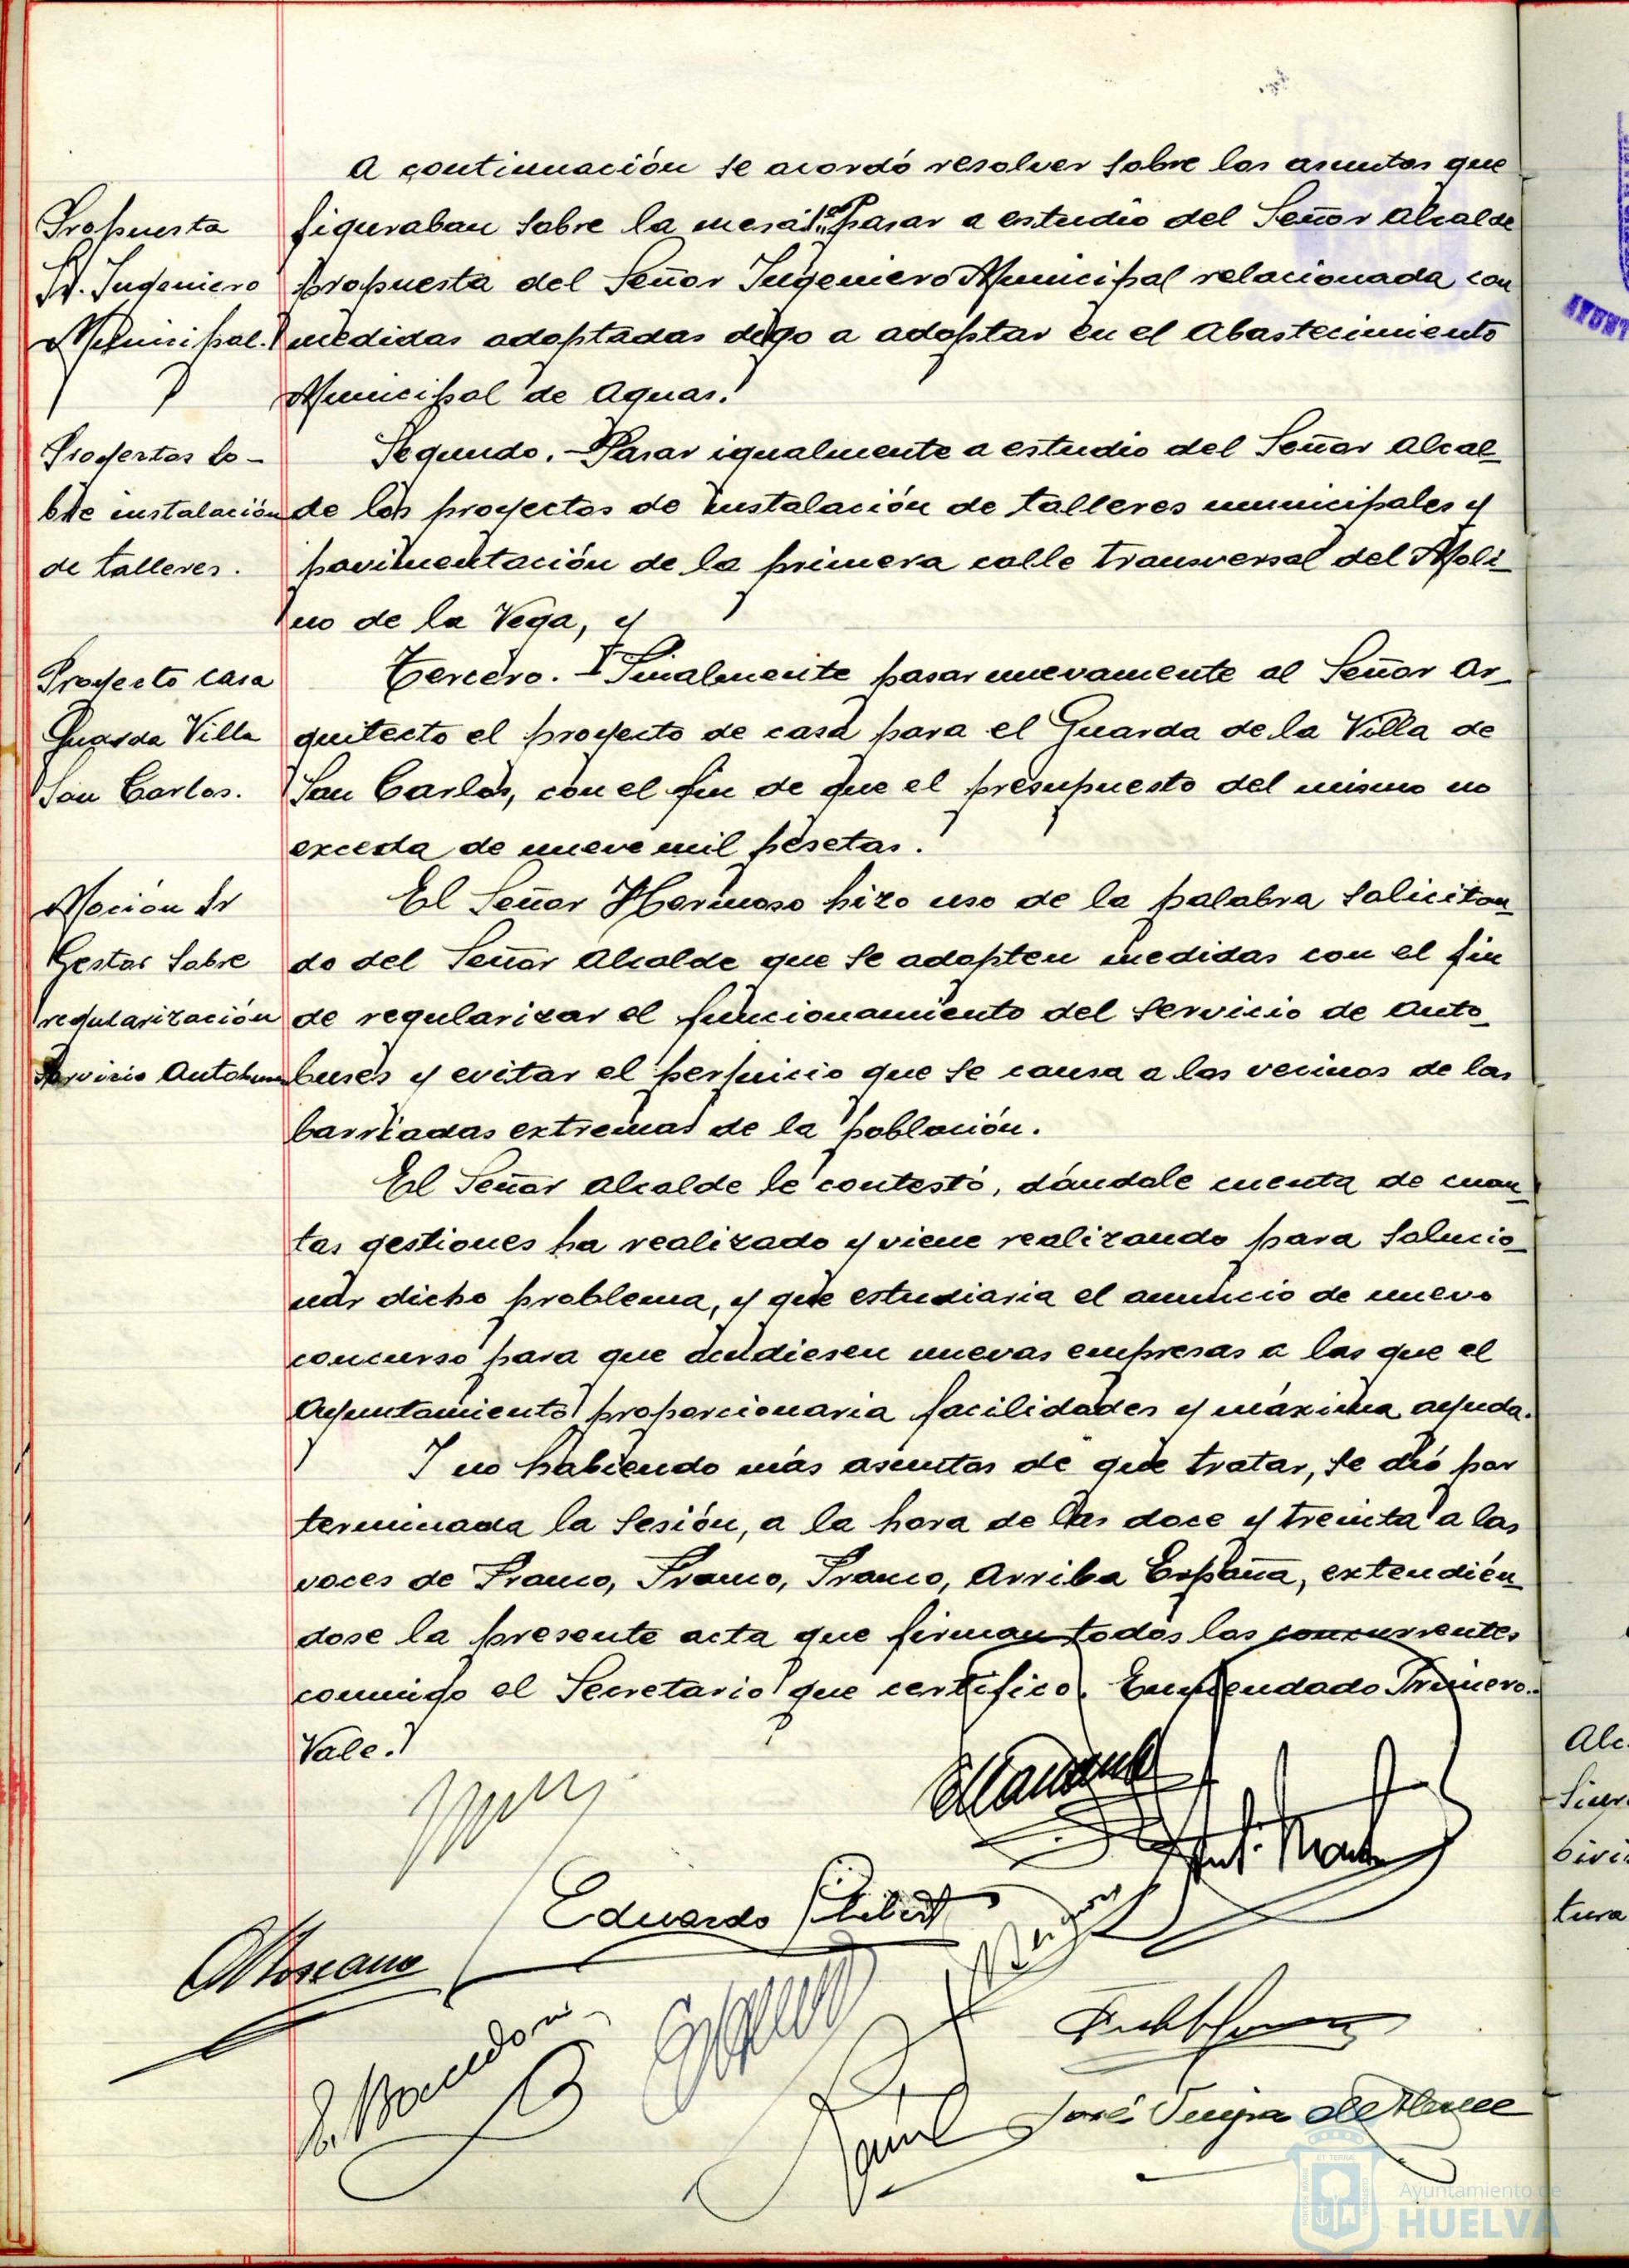 A continuación se acordó resolver sobre los asuntos que
Propuesta
Sr. Ingeniero
Municipal.
figuraban sobre la mesa: 1º Pasar a estudio del Señor Alcalde
propuesta del Señor Ingeniero Municipal relacionada con
medidas adoptadas digo a adoptar en el Abastecimiento
Municipal de Aguas.
Proyectos so-
bre instalación
de talleres.
Segundo.- Pasar igualmente a estudio del Señor Alcal-
de los proyectos de instalación de talleres municipales y
pavimentación de la primera calle transversal del Moli-
no de la Vega, y
Proyecto casa
Guarda Villa
San Carlos.
Tercero.- Finalmente pasar nuevamente al Señor Ar-
quitecto el proyecto de casa para el Guarda de la Villa de
San Carlos, con el fin de que el presupuesto del mismo no
exceda de nueve mil pesetas.
Moción Sr
Gestor sobre
regularización
Servicio Autobuses
El Señor Hermoso hizo uso de la palabra solicitan-
do del Señor Alcalde que se adopten medidas con el fin
de regularizar el funcionamiento del servicio de auto-
buses y evitar el perjuicio que se causa a los vecinos de las
barriadas extremas de la población.
El Señor Alcalde le contestó, dándole cuenta de cuan-
tas gestiones ha realizado y viene realizando para solucio-
nar dicho problema, y que estudiaria el anuncio de nuevo
concurso para que acudiesen nuevas empresas a las que el
Ayuntamiento proporcionaria facilidades y máxima ayuda.
Y no habiendo más asuntos de que tratar, se dió por
terminada la sesión, a la hora de las doce y treinta a las
voces de Franco, Franco, Franco, Arriba España, extendién-
dose la presente acta que firman todos los concurrentes
conmigo el Secretario que certifico. Enmendado Primero.-
Vale.
Eduardo
José
Ayuntamiento de
HUELVA
Alc